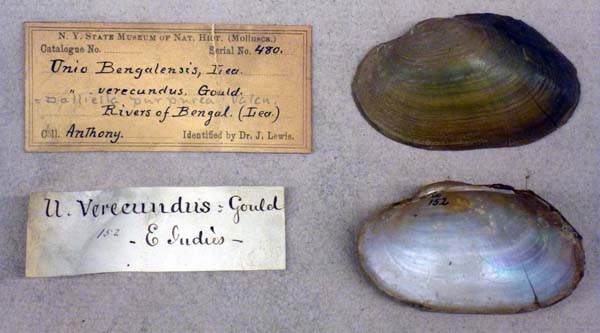 N. Y. STATE MUSEUM OF NAT. HIST. (Mollusca.)
Catalogue No. Serial No. 480.
Unio Bengalensis, Lea.
" verecundus, Gould.
= Balliella purpurea Valen.
Rivers of Bengal. (Lea.)
Coll. Anthony. Identified by Dr. J. Lewis.
U. Verecundus = Gould
152
- E Indies -
152